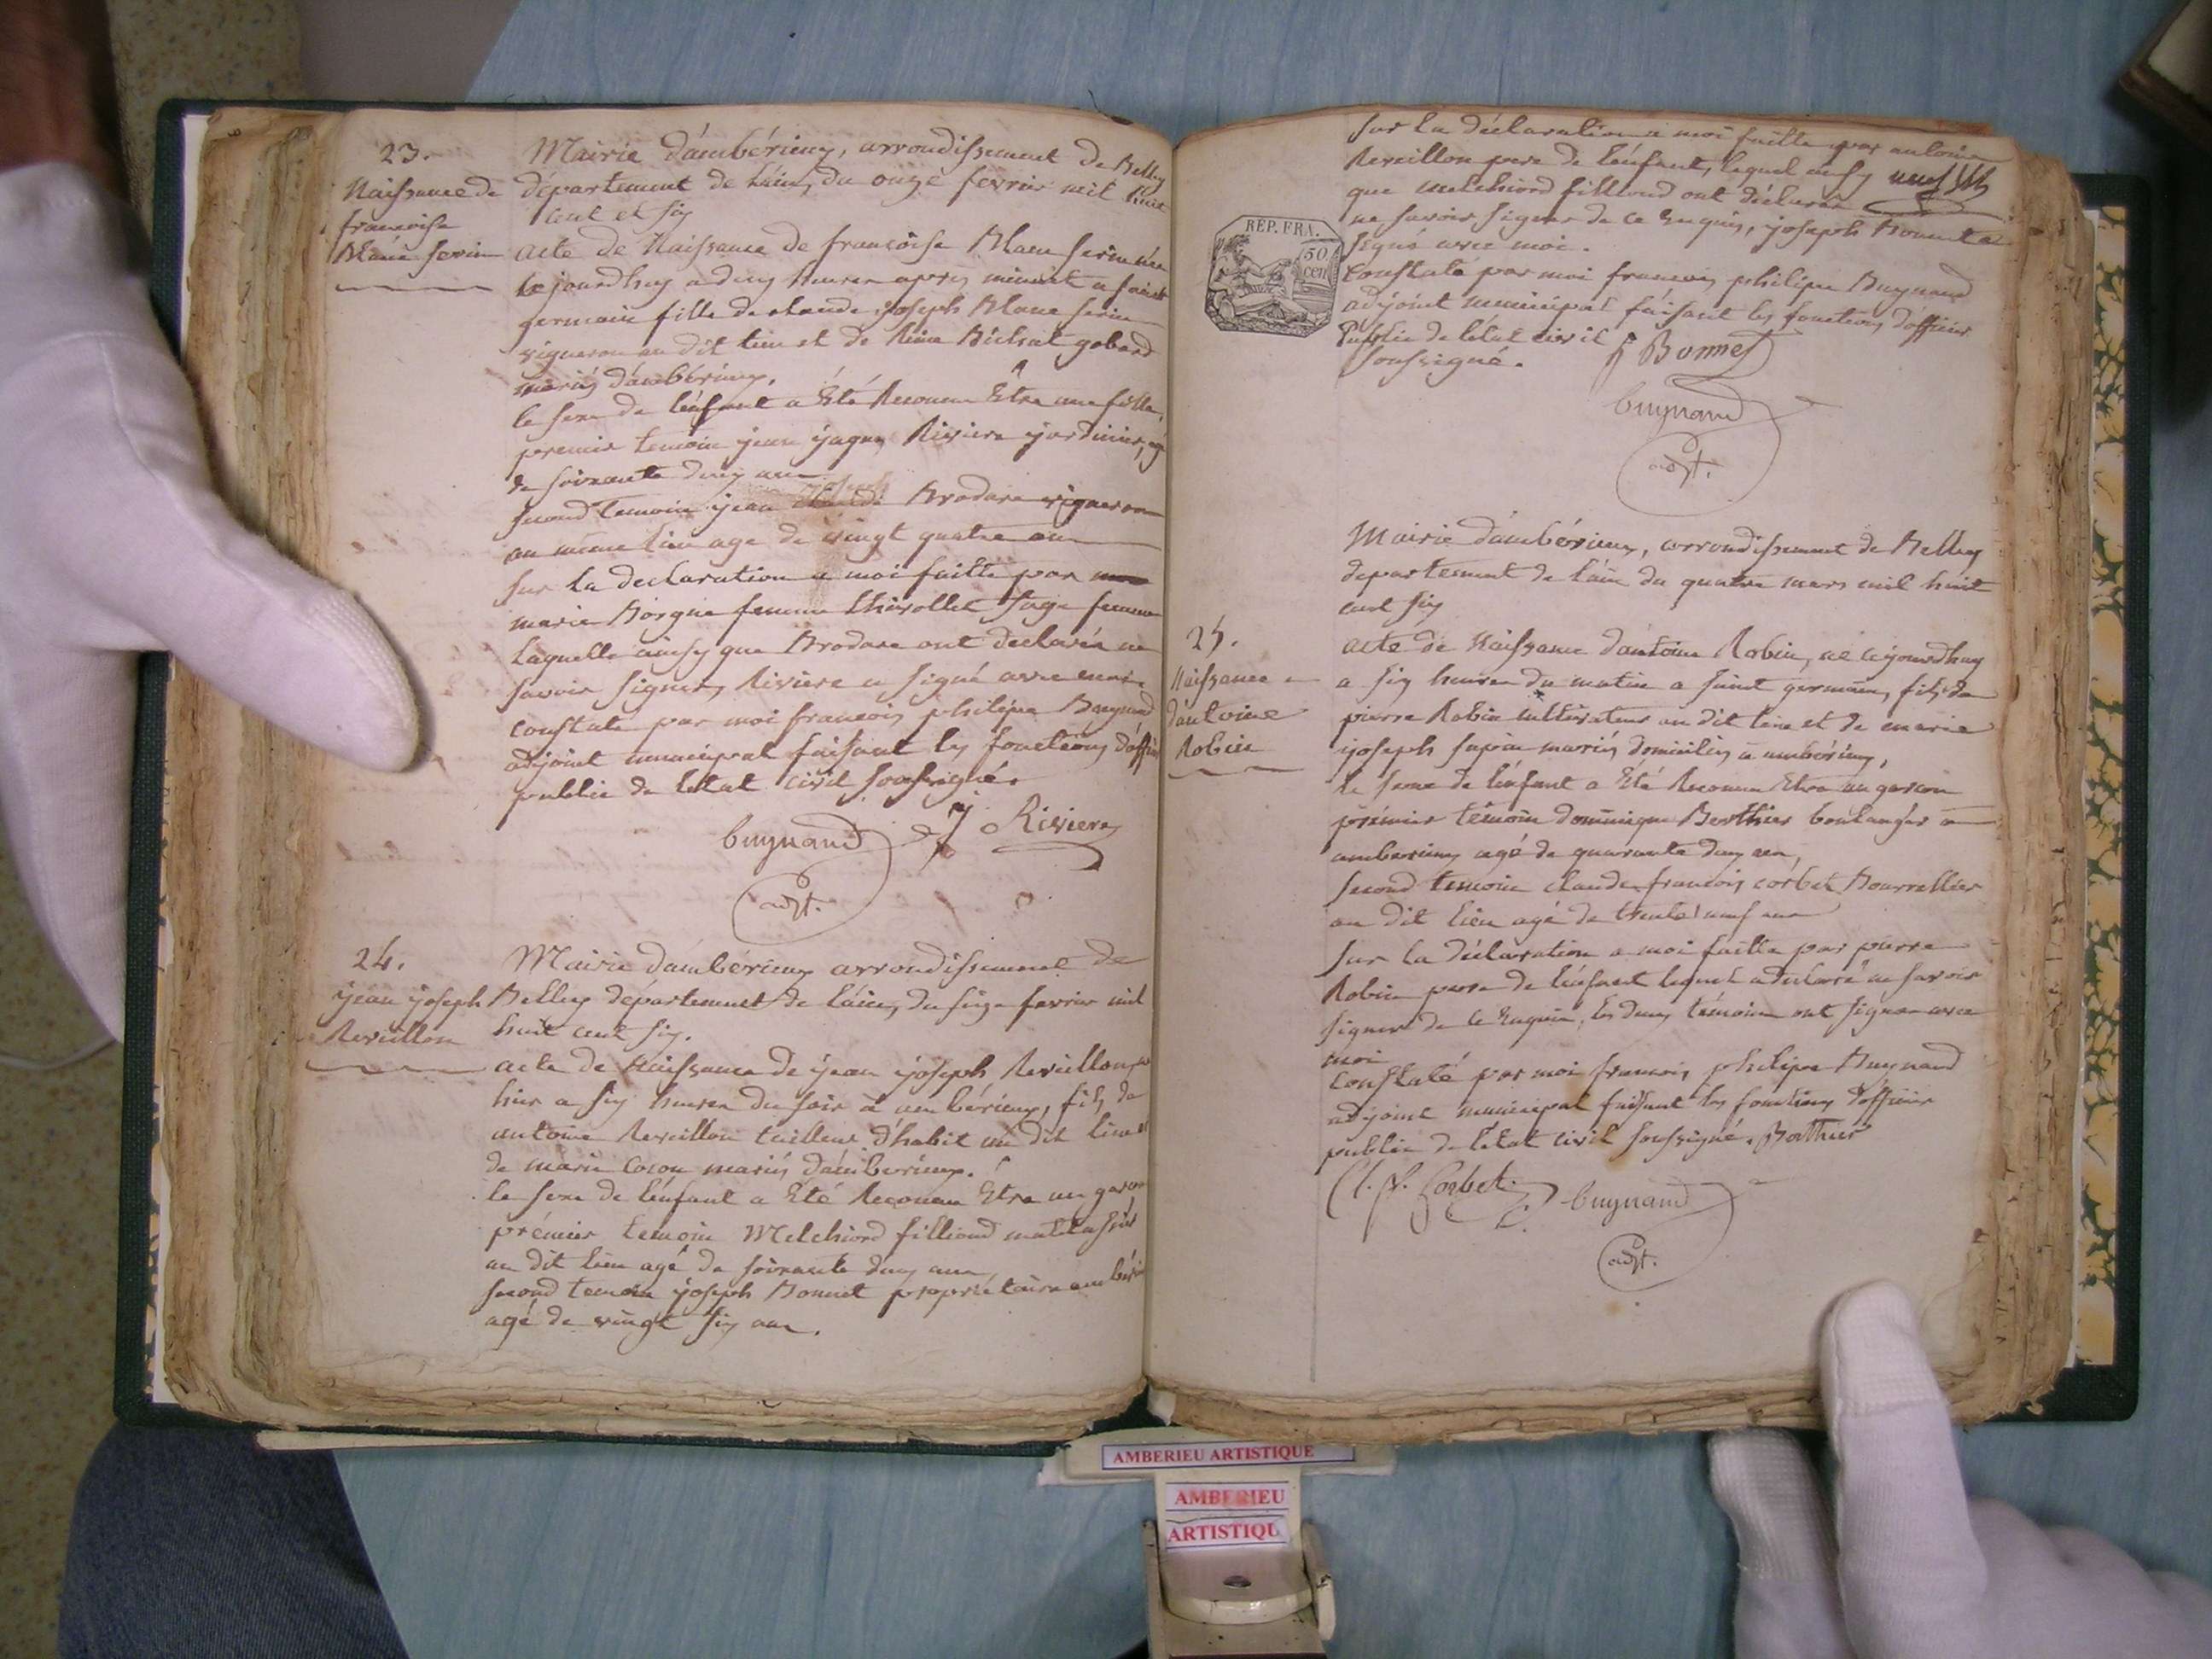 23.
Naissance de
francoise
Blanc ferin
Mairie d'ambérieux, arrondissement de Belley
département de l'ain, du onze fevrier mil huit
cent et six
acte de Naissance de francoise Blanc ferin née
cejourdhuy a deux heures apres minuit a saint
germain fille de claude joseph Blanc ferin
vigneron au dit lieu et de Bichat gobard
mariés d'ambérieux.
le sexe de l'enfant a Été Reconnu Être une fille.
premier temoin jean jaques Riviere jardinier, agé
de soixante deux ans
second temoin jean Brodare vigneron
au même lieu age de vingt quatre ans
sur la declaration a moi faitte par
marie Borgue femme thirollet sage femme
laquelle ainsy que Brodare ont declarés ne
savoir signer, Riviere a signé avec moi
constaté par moi francois philipe Buynand
adjoint municipal faisant les fonctions d'officier
public de letat civil soussigné.
buynand
J Riviere
adjt.
24.
jean joseph
Reveillon
Mairie d'ambérieux arrondissement de
Belley département de l'ain, du seize fevrier mil
huit cent six.
acte de Naissance de jean joseph Reveillon, né
hier a six heures du soir à ambérieux, fils de
antoine Reveillon tailleur d'habit au dit lieu et
de marie cocon mariés d'ambérieux.
le sexe de l'enfant a Été Reconnu Etre un garcon
prémier temoin Melchiord filliond
au dit lieu agé de soixante deux ans
second temoin joseph Bonnet propriétaire ambérieux
agé de vingt six ans.
sur la déclaration a moi faitte par antoine
Reveillon pere de l'enfant, lequel ainsy
que melchiord filliond ont déclarés
ne savoir signer de ce Enquis, joseph Bonnet a
signé avec moi.
REP. FRA.
50
cen
constaté par moi francois philipe Buynand
adjoint municipal faisant les fonctions d'officier
public de l'état civil
soussigné.
J Bonnet
buynand
adjt.
Mairie d'ambérieux, arrondissement de Belley
departement de l'ain du quatre mars mil huit
cent six
25.
Naissance
d'antoine
Robin
acte de Naissance d'antoine Robin, né cejourdhuy
a six heures du matin a saint germain, fils de
pierre Robin cultivateur au dit lieu et de marie
joseph mariés domiciliés a ambérieux,
le sexe de l'enfant a Été Reconnu Etre un garcon
prémier témoin dominique Berthier boulanger a
ambérieux agé de quarante deux ans,
second temoin claude francois corbet Bourrellier
au dit lieu agé de trente neuf ans
sur la déclaration a moi faitte par pierre
Robin pere de l'enfant lequel a declaré ne savoir
signer de ce Enquis, les deux témoins ont signés avec
moi
constaté par moi francois philipe Buynand
adjoint municipal faisant les fonctions d'officier
public de l'état civil soussigné. Berthier
Cl. f. Corbet.
buynand
adjt.
AMBERIEU ARTISTIQUE
AMBERIEU
ARTISTIQU